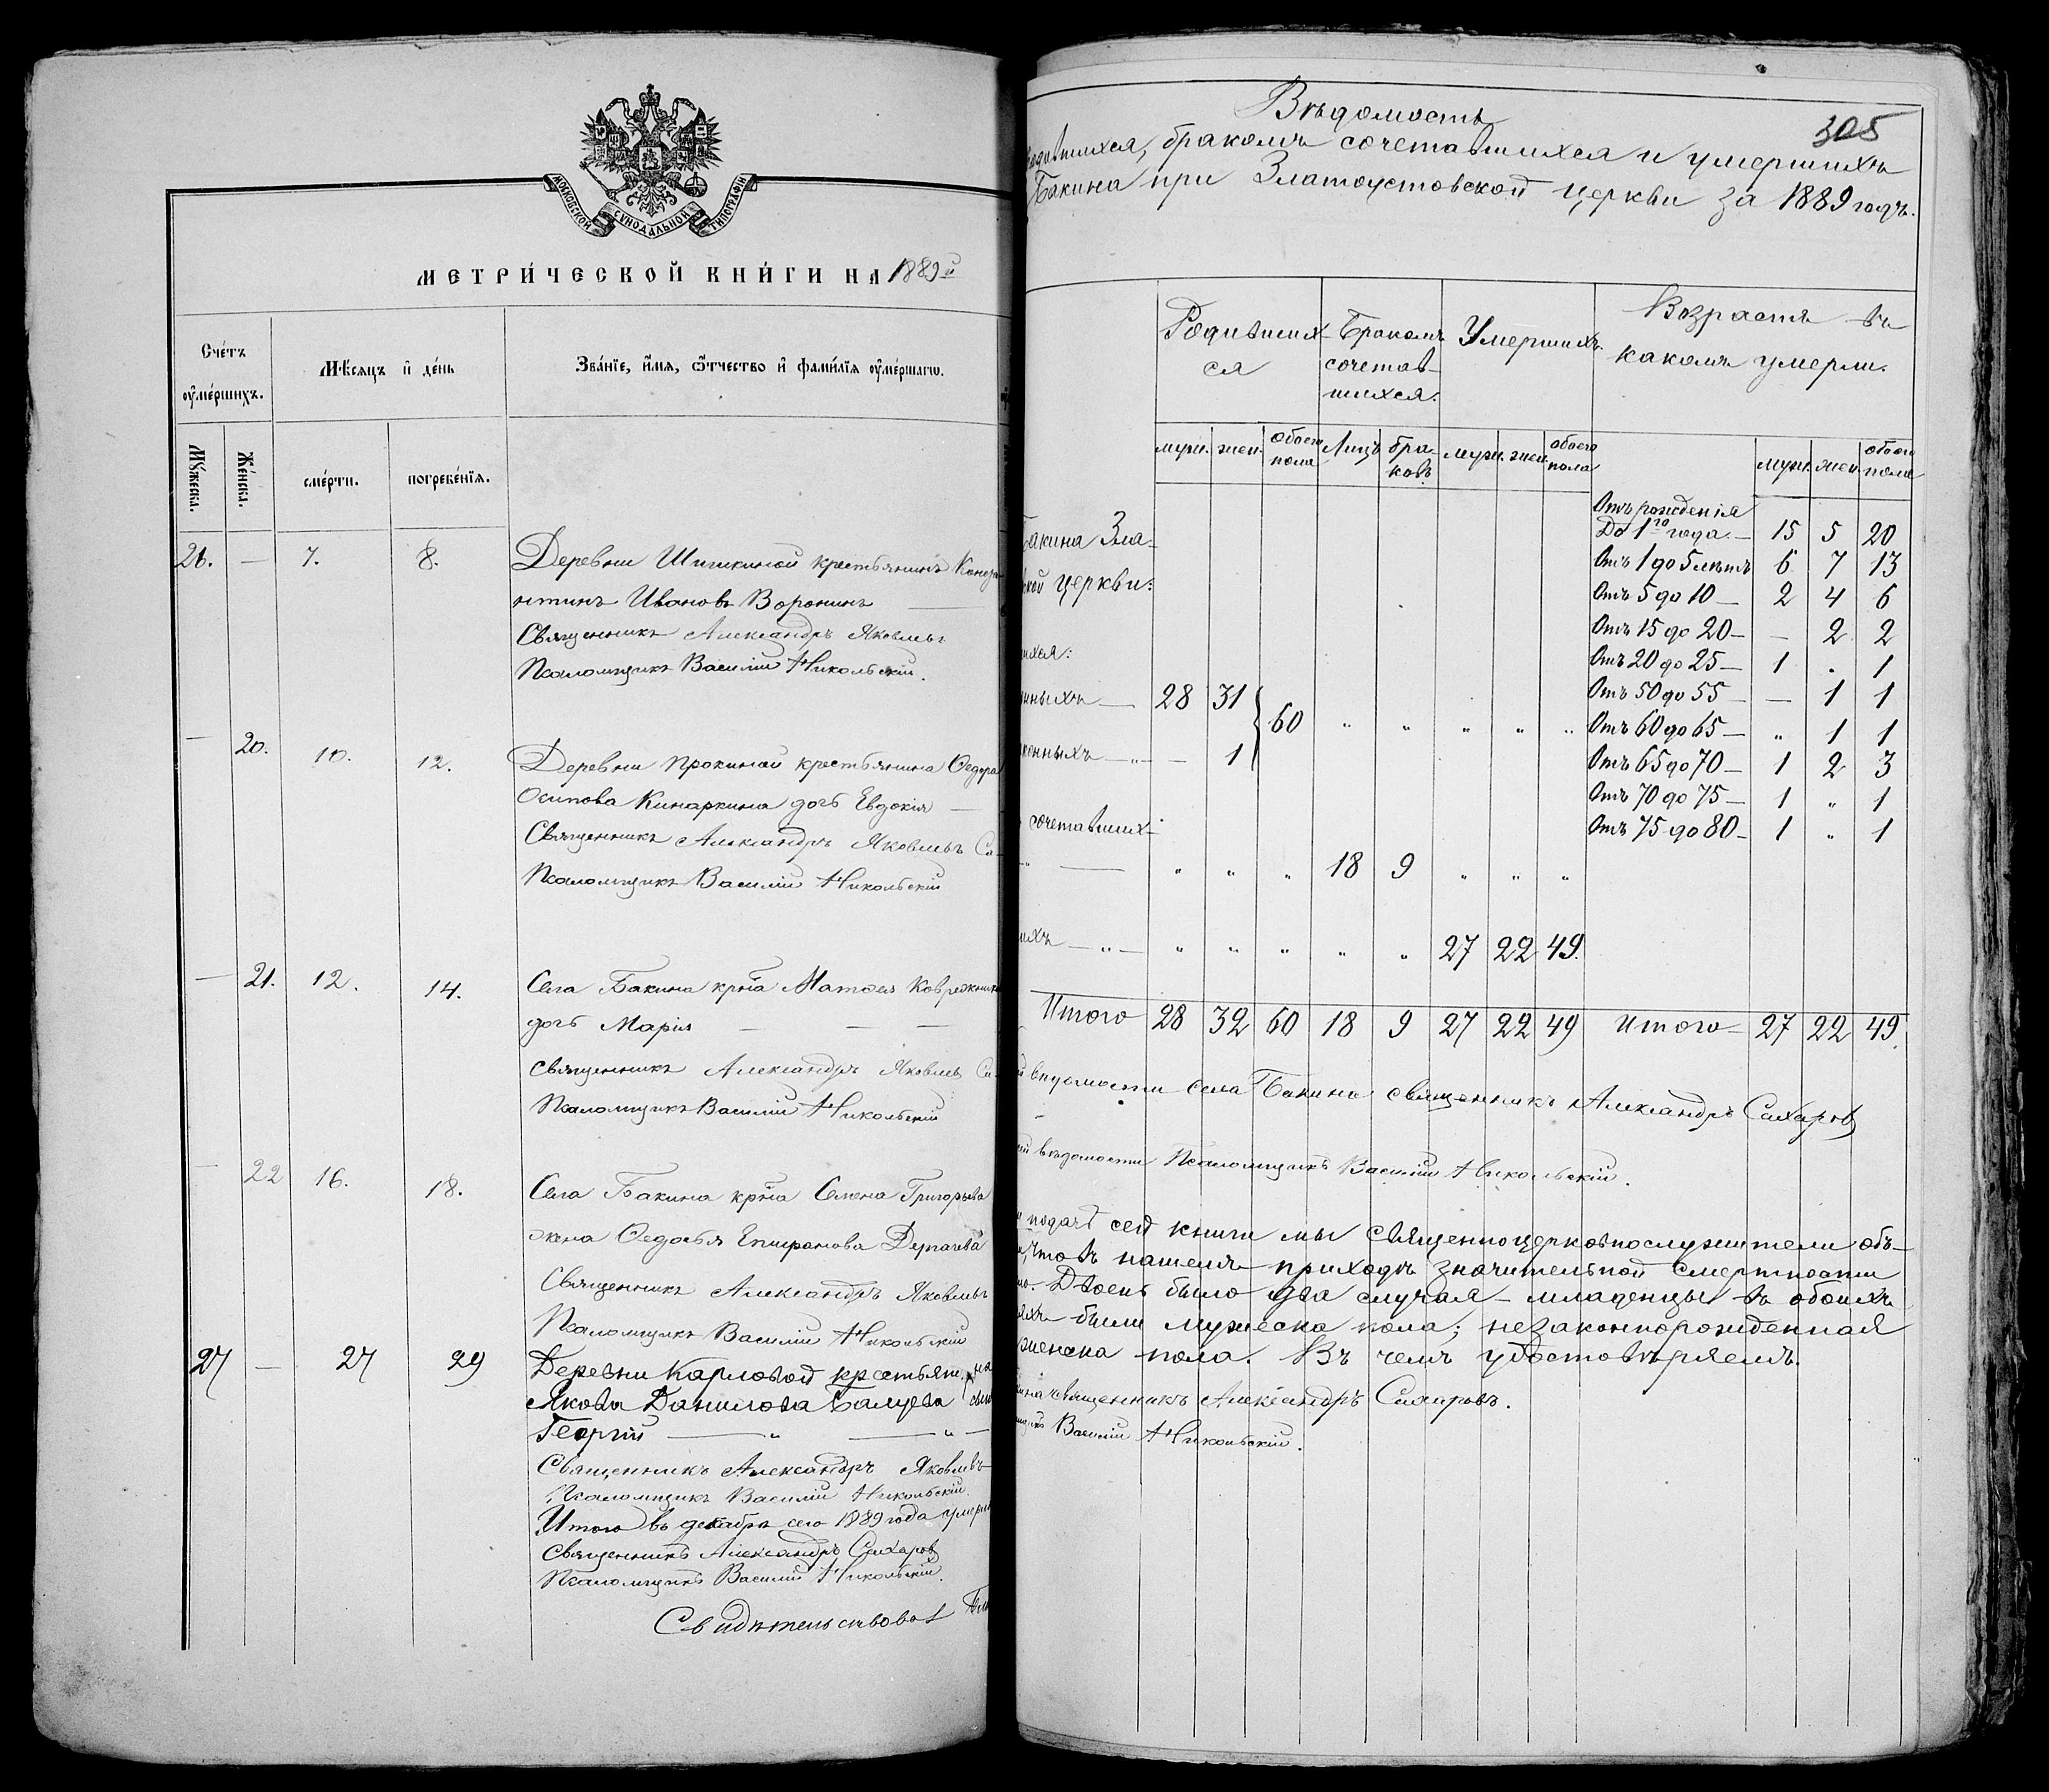 МОСКОВСКОЙ СѴНОДАЛЬНОЙ ТИПОГРАФІИ
МЕТРИ́ЧЕСКОЙ КНИ́ГИ НА 1889й
Сче́тъ оу҆ме́ршихъ.
Мѣ́сяцъ и҆ де́нь
Зва́нїе, и҆́мя, ѻ҆́тчество и҆ фами́лїя оу҆ме́ршагѡ.
Мꙋ́жеска.
Же́нска.
сме́рти.
погребе́нїя.
26. — 7. 8. Деревни Шишкиной крестьянинъ Конста-
нтинъ Ивановъ Воронинъ
Священникъ Александръ Яковлевъ
Псаломщикъ Василій Никольскій.
— 20. 10. 12. Деревни Прокиной крестьянина Ѳедора
Осипова Кинаркина дочь Евдокія —
Священникъ Александръ Яковлевъ Са-
Псаломщикъ Василій Никольскій
— 21. 12. 14. Села Бакина кр꙯на Матѳея
дочь Марія — — —
Священникъ Александръ Яковлевъ Са-
Псаломщикъ Василій Никольскій
— 22 16. 18. Села Бакина кр꙯на Семена Григорьева
жена Ѳедосья Епифанова Дергачева
Священникъ Александръ Яковлевъ
Псаломщикъ Василій Никольскій
27 — 27 29 Деревни Карповой крестьяни-на
Якова Данилова Балуева сынъ
Георгій — „ — „ —
Священникъ Александръ Яковлевъ
Псаломщикъ Василій Никольскій.
Итого въ декабрѣ сего 1889 года умерш
Священникъ Александръ Сахаровъ
Псаломщикъ Василій Никольскій.
Свидѣтельствовал
305
Вѣдомость
родившихся, бракомъ сочетавшихся и умершихъ
Бакина при Златоустовской церкви за 1889 годъ.
Родивших-
ся
Бракомъ
сочетав-
шихся.
Умершихъ.
Возрастъ въ
какомъ умерли.
муж. жен. обоего пола Лицъ бра-ковъ муж. жен. обоего пола муж. жен. обоего пола
Отъ рожденія
До 1го года. — 15 5 20
Отъ 1 до 5 лѣтъ 6 7 13
Отъ 5 до 10 — 2 4 6
Отъ 15 до 20 — — 2 2
Отъ 20 до 25 — 1 „ 1
Отъ 50 до 55 — — 1 1
Отъ 60 до 65 — „ 1 1
Отъ 65 до 70 — 1 2 3
Отъ 70 до 75 — 1 „ 1
Отъ 75 до 80 — 1 „ 1
Бакина Зла-
ской церкви:
ихся:
нныхъ — 28 31
60 „ „ „ „ „
конныхъ — „ — — 1
сочетавших-
„ — „ „ „ 18 9 „ „ „
ихъ — „ — „ „ „ „ „ 27 22 49.
Итого 28 32 60 18 9 27 22 49 Итого — 27 22 49.
й вѣдомости села Бакина священникъ Александръ Сахаровъ
ей вѣдомости Псаломщикъ Василій Никольскій.
и подачѣ сей книги мы священноцерковнослужители объ-
что въ нашемъ приходѣ значительной смертности
Двоень было два случая — младенцы въ обоихъ
яхъ были мужеска пола; незаконнорожденная
женска пола. Въ чемъ удостовѣряемъ.
кина священникъ Александръ Сахаровъ.
щикъ Василій Никольскій.